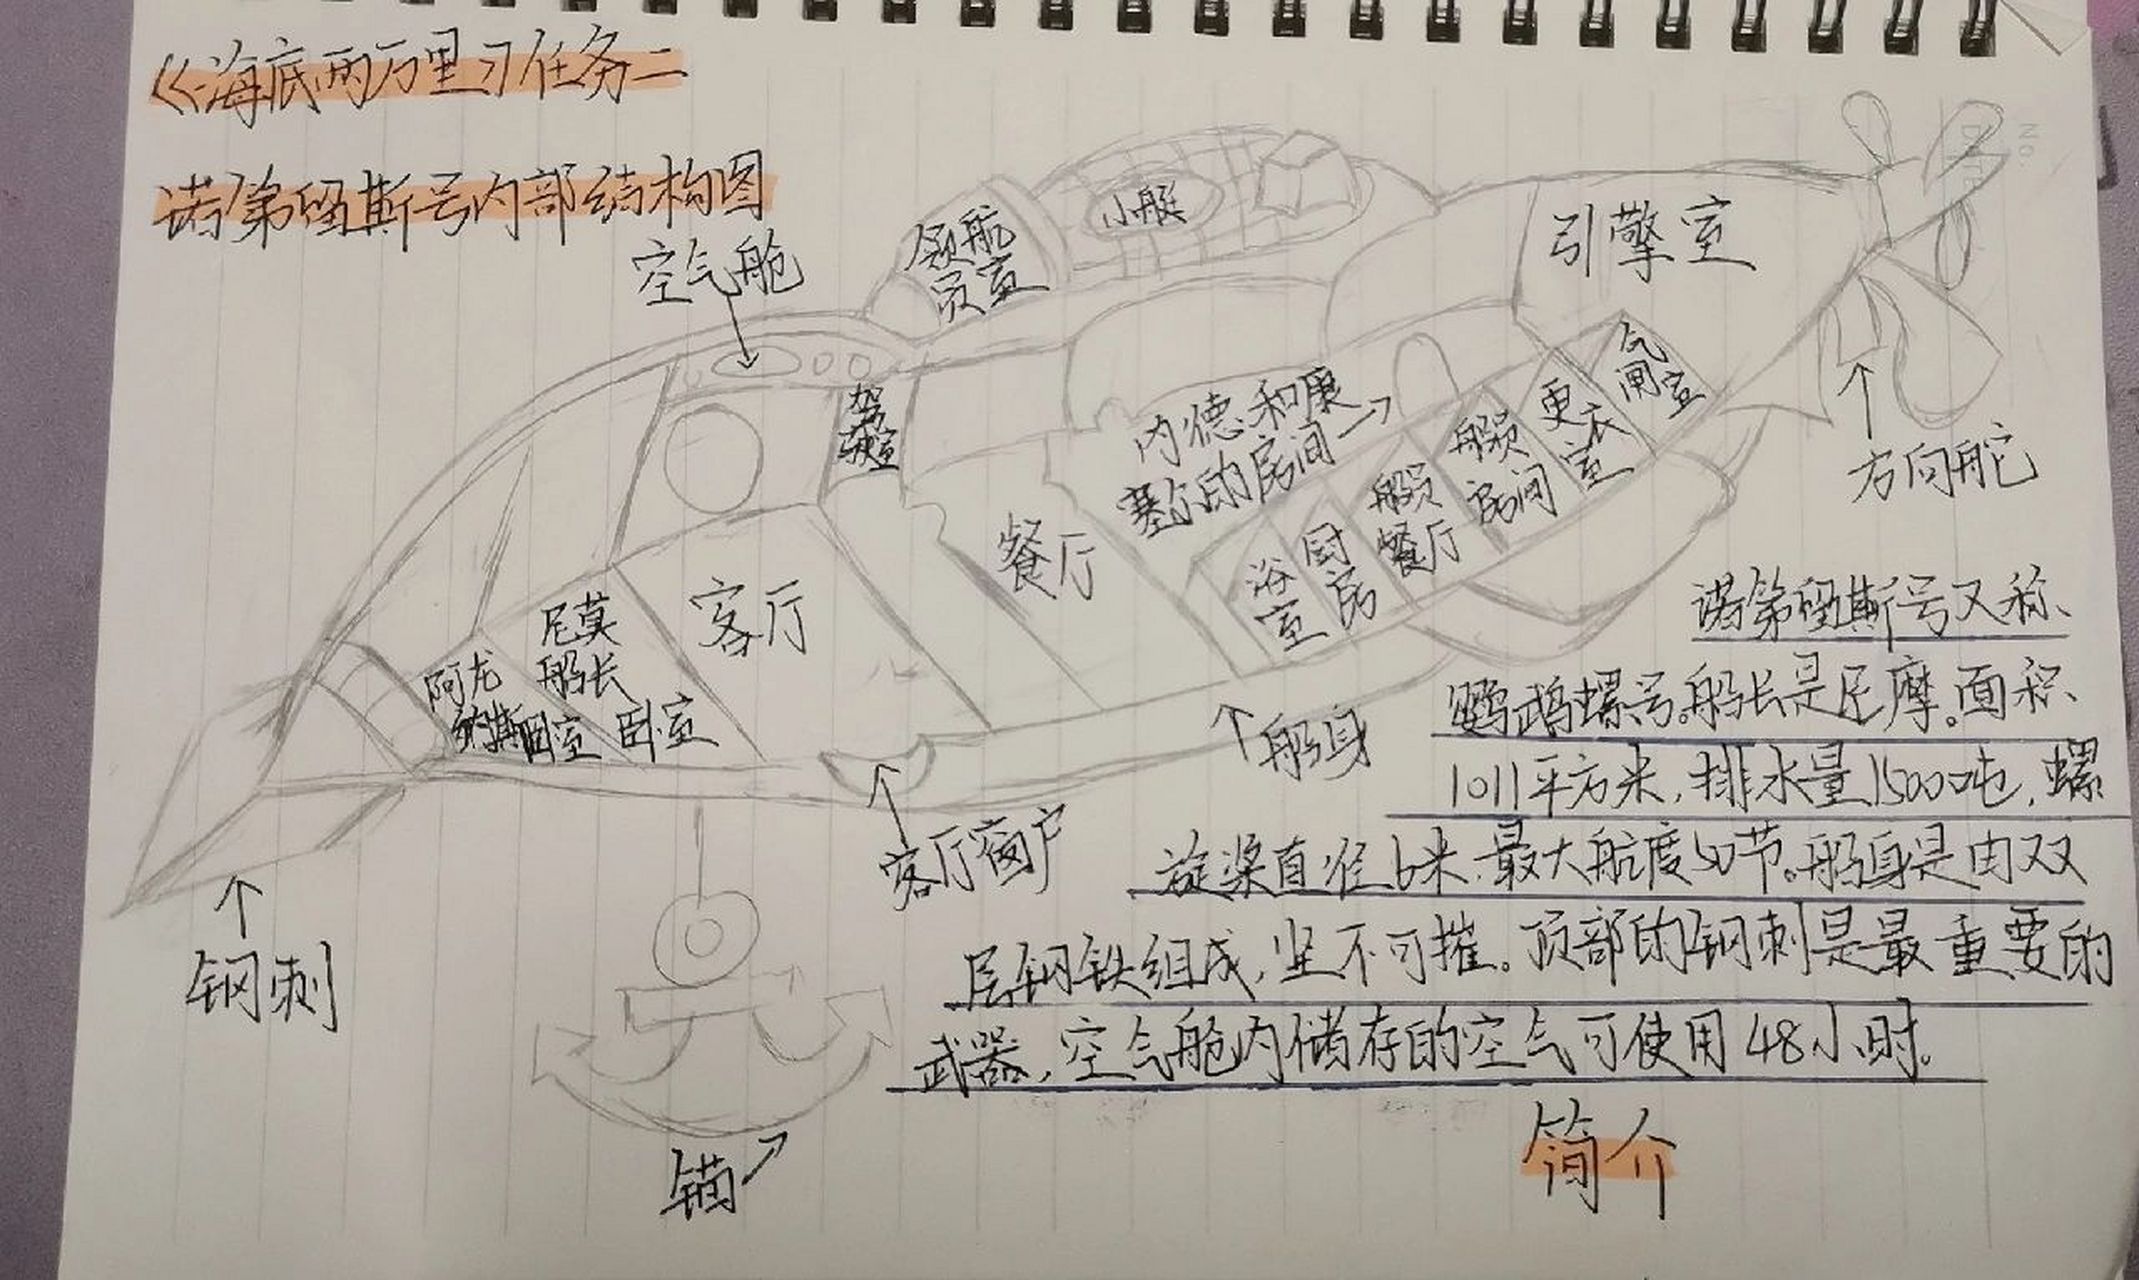 《海底两万里》任务二
诺第留斯号内部结构图
空气舱
领航
员室
小艇
引擎室
驾
驶室
内德和康
塞尔的房间
气
闸室
更衣
室
船员
房间
船员
餐厅
厨
房
浴
室
方向舵
餐厅
客厅
尼莫
船长
卧室
阿龙
纳斯卧室
船身
客厅窗户
钢刺
锚
诺第留斯号又称
鹦鹉螺号。船长是尼摩。面积
1011平方米,排水量1500吨,螺
旋桨直径6米.最大航度50节。船身是由双
层钢铁组成,坚不可摧。顶部的钢刺是最重要的
武器,空气舱内储存的空气可使用48小时。
简介